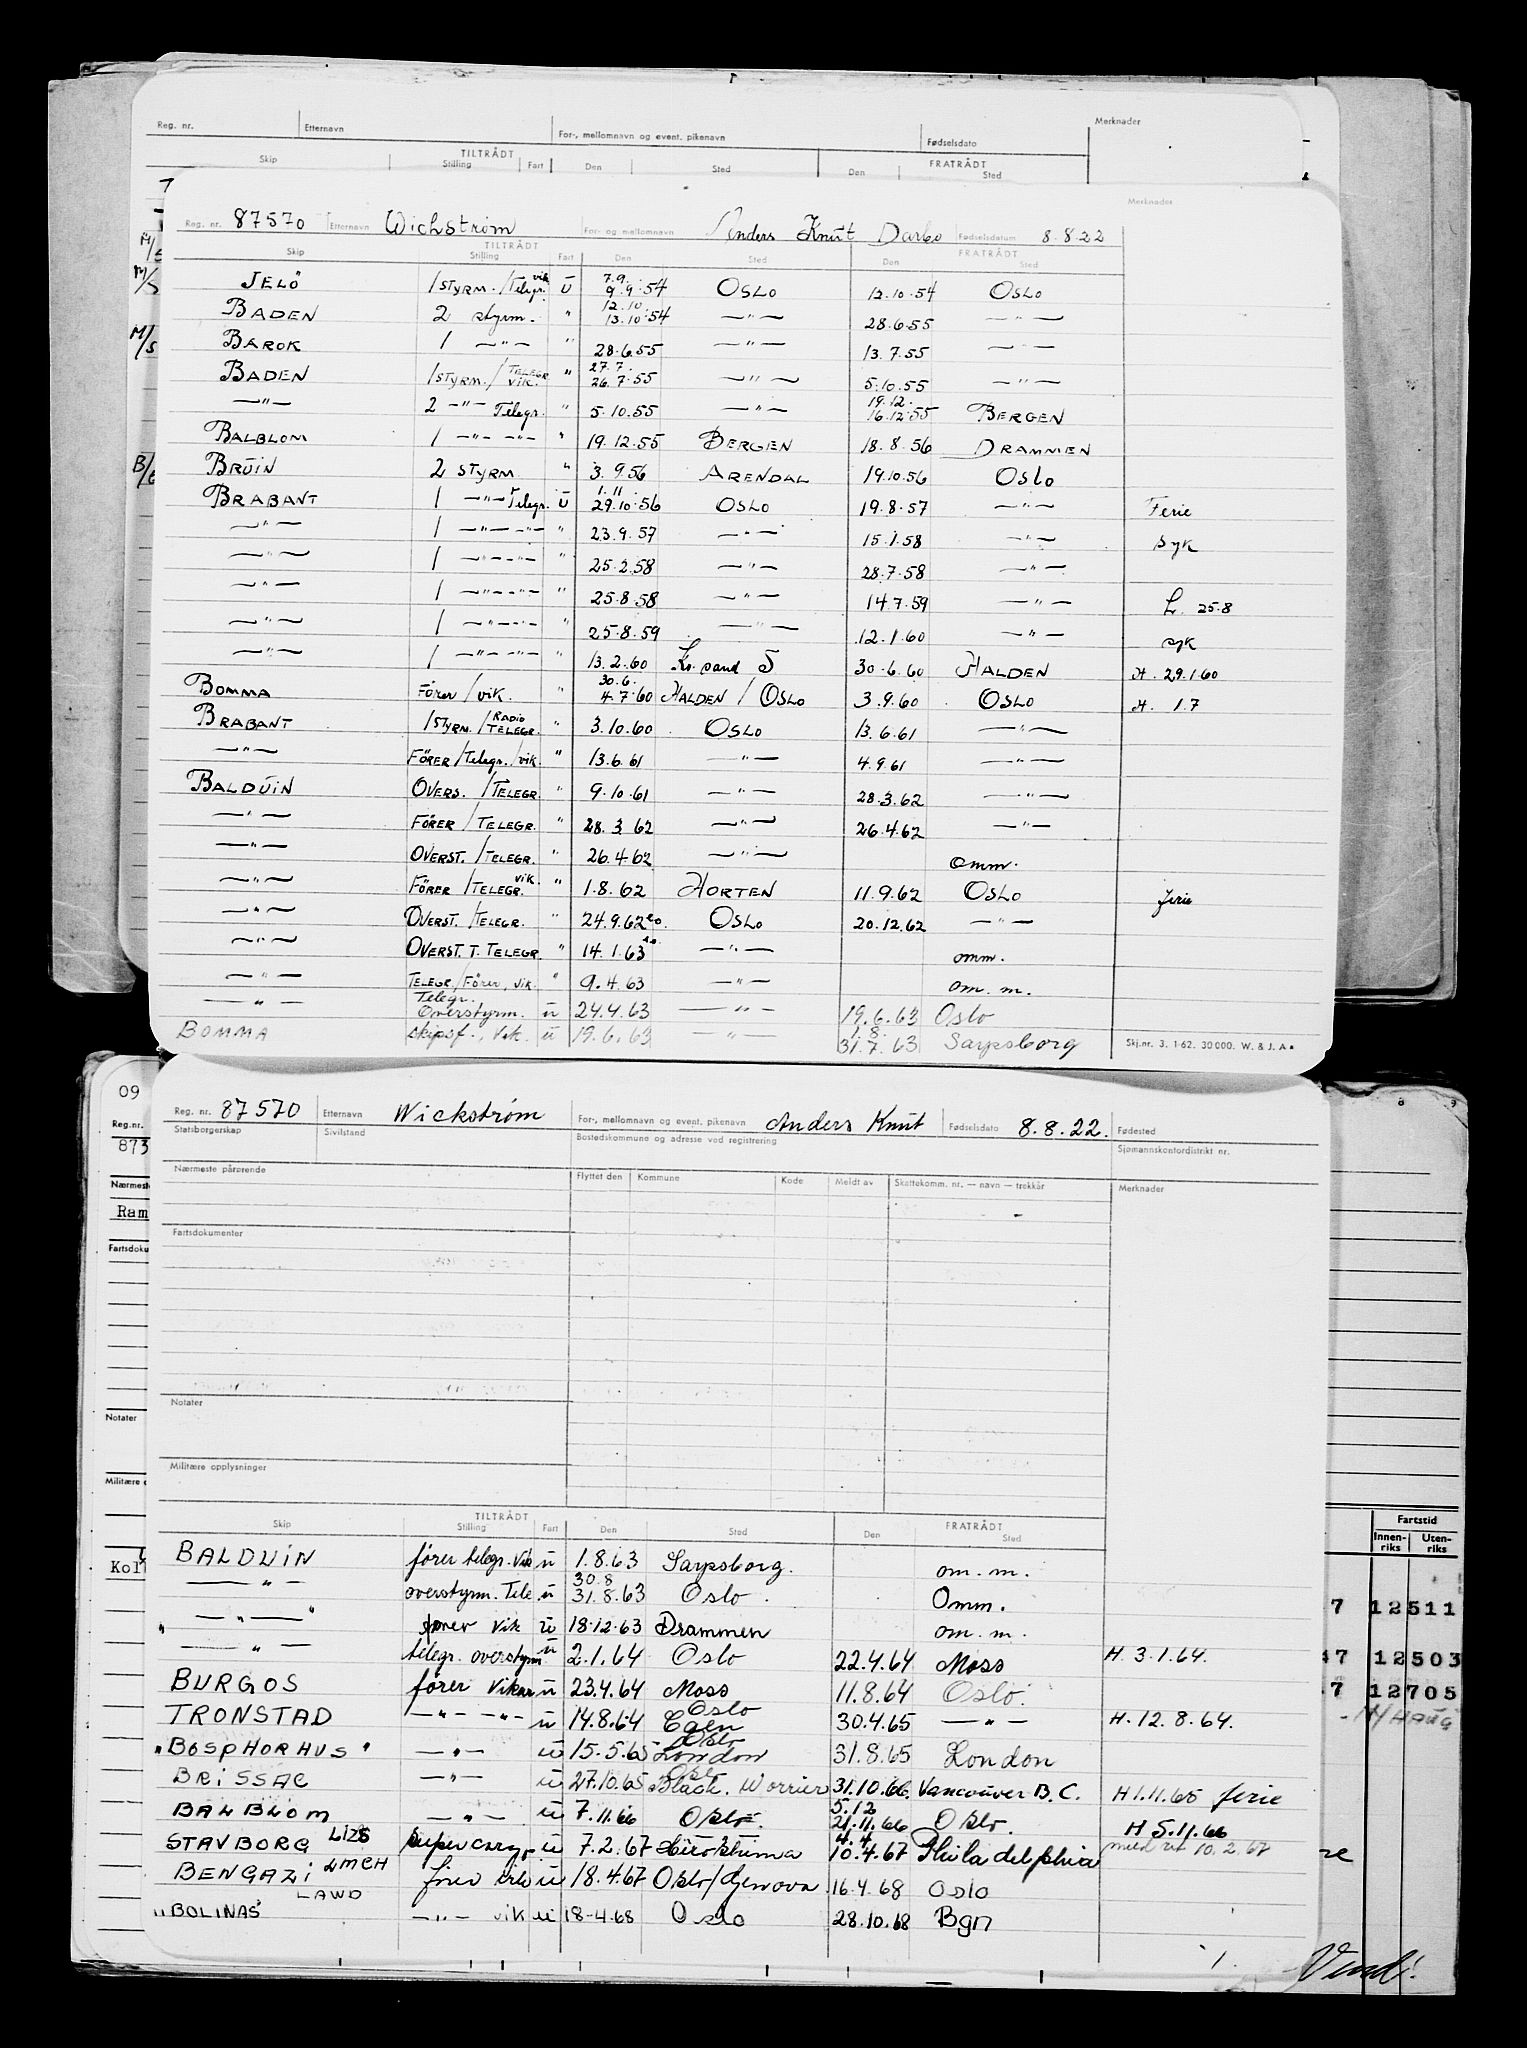 Reg. nr. Etternavn For-, mellomnavn og event. pikenavn Fødselsdato Merknader
Skip TILTRÅDT Stilling Fart Den Sted Den FRATRÅDT Sted
Merknader
Reg. nr. 87570 Etternavn Wichstrøm For- og mellomnavn Anders Knut Darbo Fødselsdatum 8.8.22
Skip TILTRÅDT Stilling Fart Den Sted Den FRATRÅDT Sted
M/S JELÖ 1 STYRM. / Telegr. vik u 7.9. 9.9.54 OSLO 12.10.54 OSLO
BADEN 2 styrm. " 12.10. 13.10.54 —"— 28.6.55 —"—
M/S BAROK 1 —"— " 28.6.55 —"— 13.7.55 —"—
BADEN 1 STYRM. / TELEGR VIK. " 27.7. 26.7.55 —"— 5.10.55 —"—
—"— 2 —"— Telegr. " 5.10.55 —"— 19.12. 16.12.55 BERGEN
BALBLOM 1 —"— —"— " 19.12.55 BERGEN 18.8.56 DRAMMEN
BRUIN 2 STYRM " 3.9.56 ARENDAL 19.10.56 OSLO
BRABANT 1 —"— Telegr. u 1.11 29.10.56 OSLO 19.8.57 —"— Ferie
—"— 1 —"— —"— " 23.9.57 —"— 15.1.58 —"— syk
—"— 1 —"— —"— " 25.2.58 —"— 28.7.58 —"—
—"— 1 —"— —"— " 25.8.58 —"— 14.7.59 —"— H. 25.8
—"— 1 —"— —"— " 25.8.59 —"— 12.1.60 —"— syk
—"— 1 —"— —"— " 13.2.60 Kr. sand S 30.6.60 HALDEN H. 29.1.60
BOMMA Förer / vik. " 30.6. 4.7.60 HALDEN / OSLO 3.9.60 OSLO H. 1.7
BRABANT 1 STYRM. / RADIO TELEGR. " 3.10.60 OSLO 13.6.61 —"—
—"— FÖRER / Telegr. / vik. " 13.6.61 —"— 4.9.61 —"—
BALDUIN OVERS. / TELEGR. " 9.10.61 —"— 28.3.62 —"—
—"— FÖRER / TELEGR. " 28.3.62 —"— 26.4.62 —"—
—"— OVERST. / TELEGR. " 26.4.62 —"— omm.
—"— FÖRER / TELEGR. vik. " 1.8.62 HORTEN 11.9.62 OSLO ferie
—"— OVERST. / TELEGR. " 24.9.62 OSLO 20.12.62 —"—
—"— OVERST. T. TELEGR. " 14.1.63 —"— omm.
—"— TELEGR. / Förer, vik. " 9.4.63 —"— om. m.
—"— Telegr. Overstyrm. u 24.4.63 —"— 19.6.63 Oslo
BOMMA skipsf., Vik. u 19.6.63 —"— 1.8. 31.7.63 Sarpsborg
Skj.nr. 3. 1-62. 30000. W. & J. A.
09
Reg. nr. 87570 Etternavn Wickstrøm For-, mellomnavn og event. pikenavn Anders Knut Fødselsdato 8.8.22. Fødested
Statsborgerskap Sivilstand Bostedskommune og adresse ved registrering Sjømannskontordistrikt nr.
Reg.nr.
873
Nærmeste pårørende Flyttet den Kommune Kode Meldt av Skattekomm. nr. — navn — trekkår Merknader
Ram
Fartsdokumenter
Notater
Militære opplysninger
Skip TILTRÅDT Stilling Fart Den Sted Den FRATRÅDT Sted
Fartstid
Innen-riks Uten-riks
Kol
BALDUIN fører telegr. Vik u 1.8.63 Sarpsborg. om. m.
—"— overstyrm. Tele. u 30.8 31.8.63 Oslo. Omm.
7 12511
—"— fører vik u 18.12.63 Drammen om. m.
—"— telegr. overstyrm u 2.1.64 Oslo 22.4.64 Moss H. 3.1.64.
47 12503
BURGOS fører Vikar u 23.4.64 Moss 11.8.64 Oslo.
7 12705
TRONSTAD —"— —"— u 14.8.64 Oslo Caen 30.4.65 —"— H. 12.8.64.
"BOSPHORHUS" —"— u 15.5.65 Oslo London 31.8.65 London
BRISSAC —"— u 27.10.65 Oslo Black. Worrier 31.10.66 Vancouver B.C. H 1.11.65 ferie
BALBLOM —"— u 7.11.66 Oslo. 5.12 21.11.66 Oslo. H 5.11.66
STAVBORG LIZS supercargo u 7.2.67 Hiroshima 4.4. 10.4.67 Philadelphia 10.2.67
BENGAZI LMCH fører u 18.4.67 Oslo/Genova 16.4.68 Oslo
"BOLINAS" LAWD —"— vik u 18-4.68 Oslo 28.10.68 Bgn
Vend!